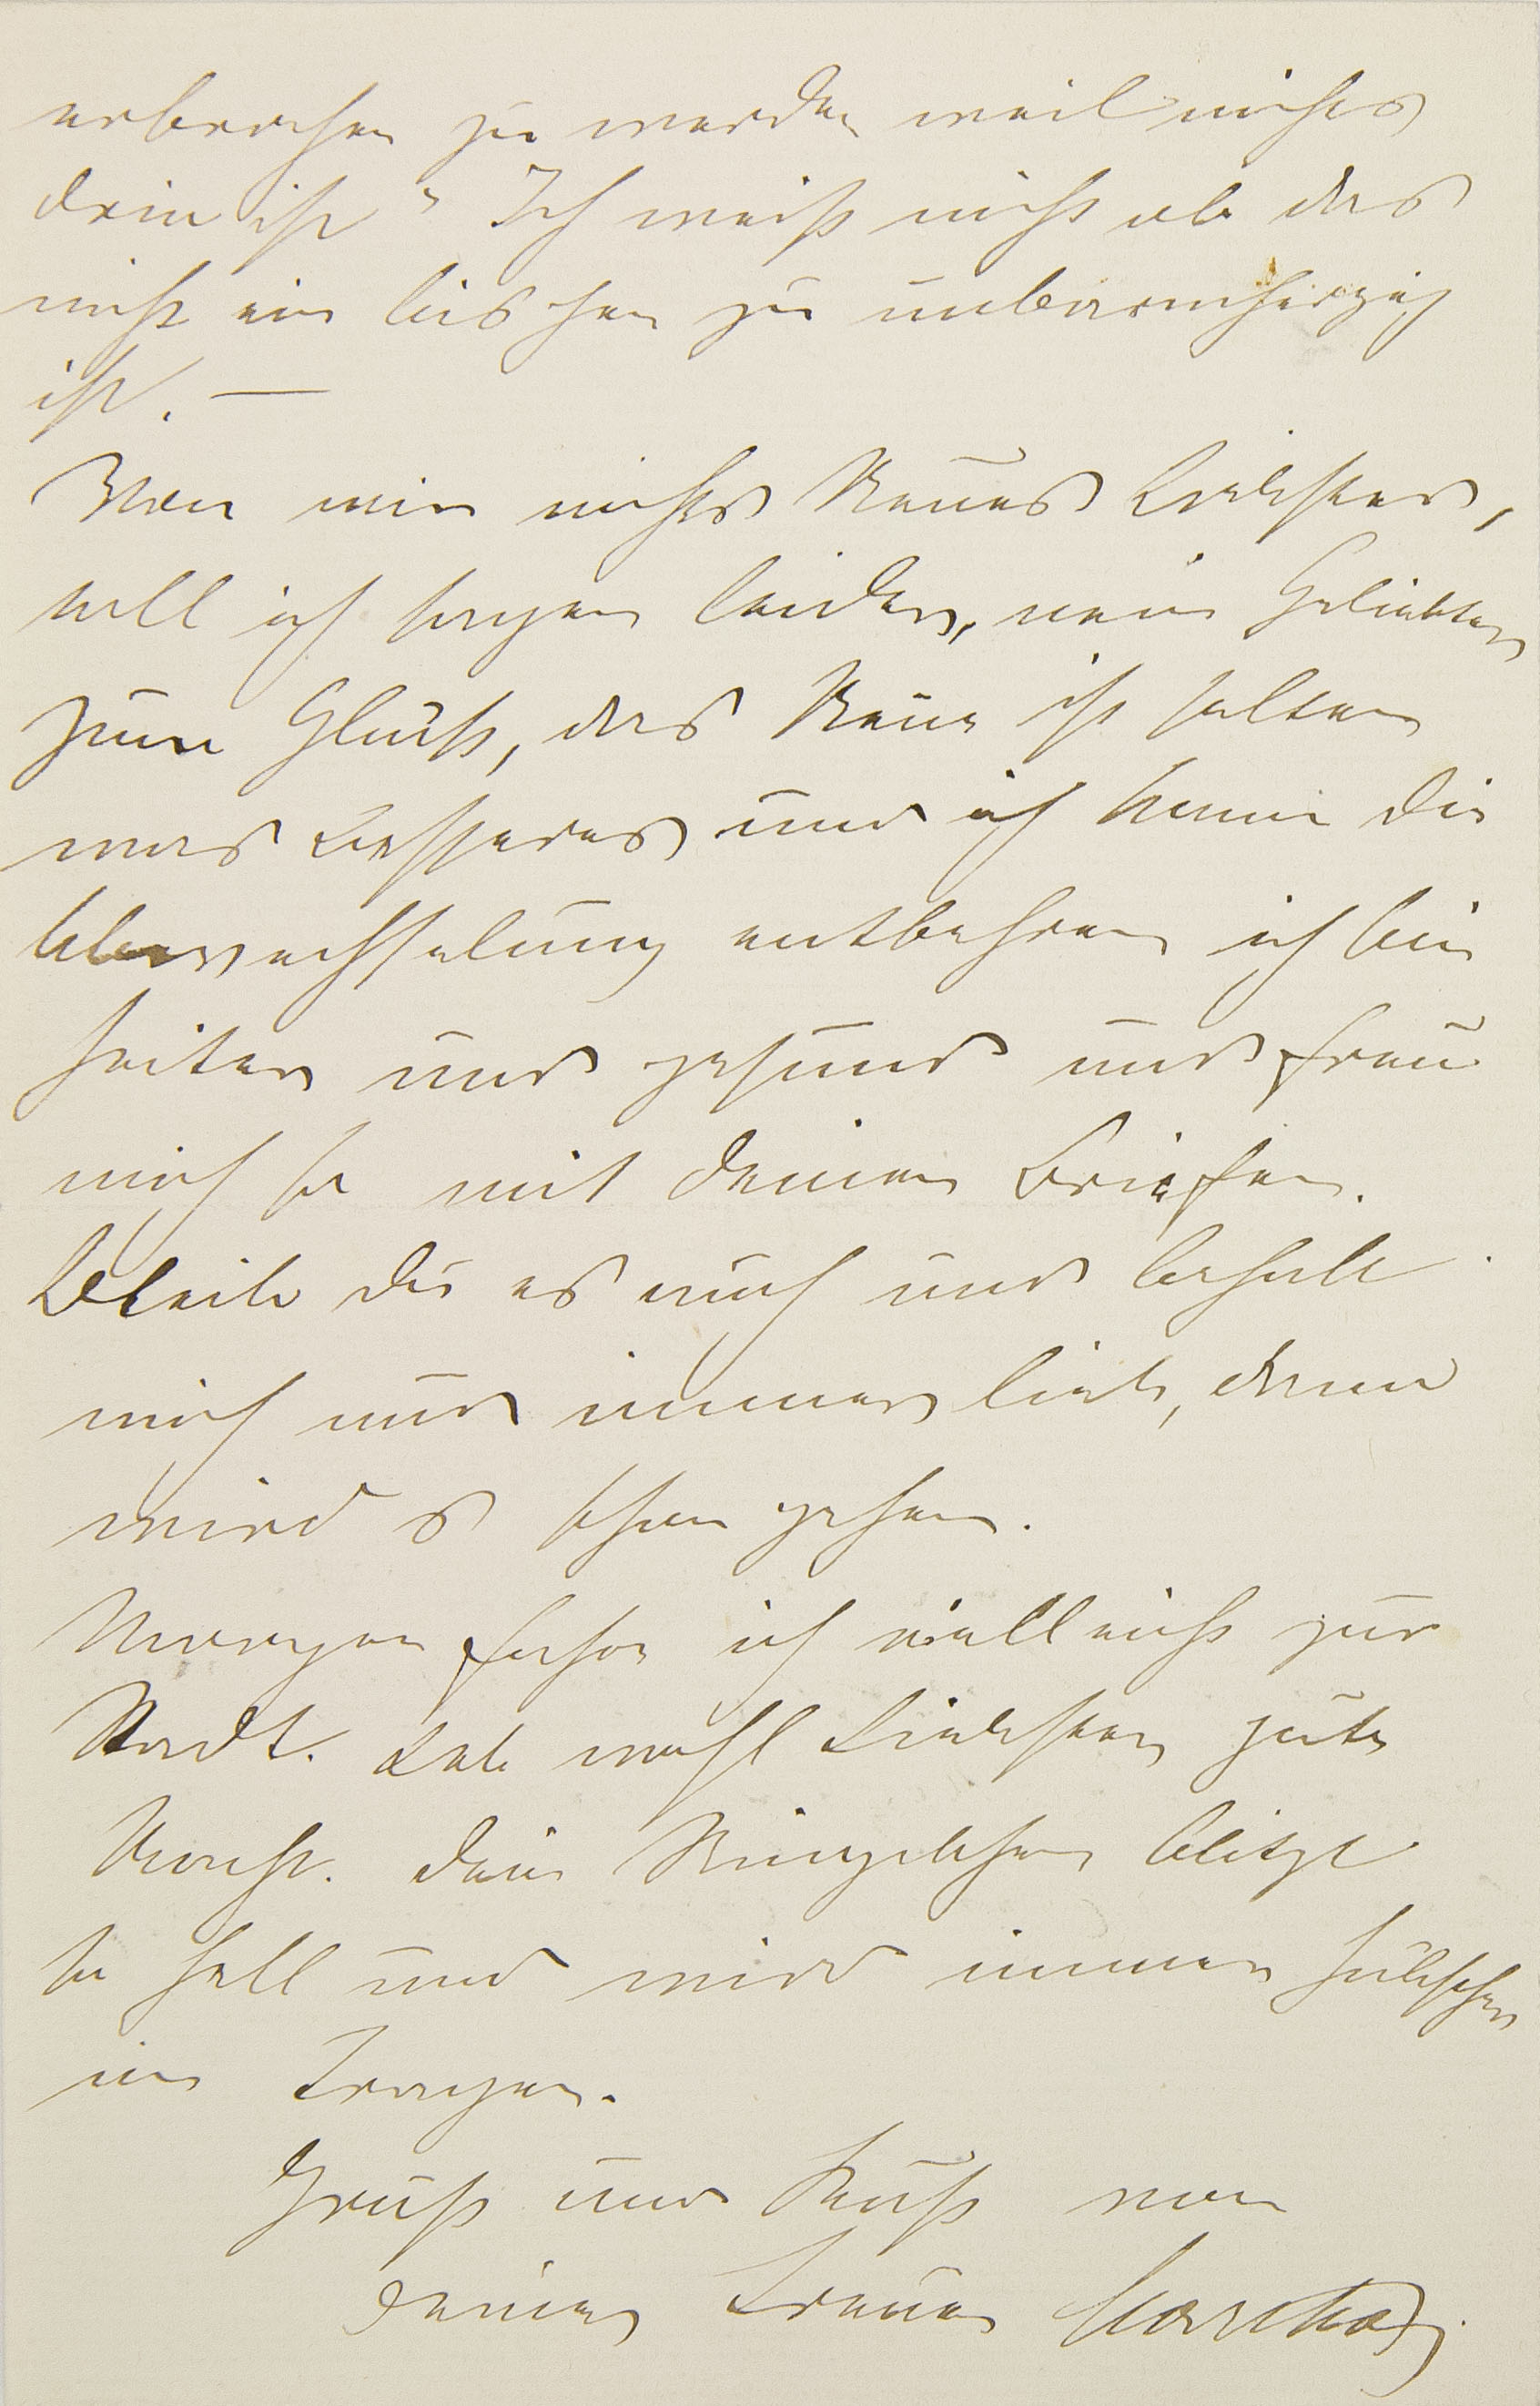 erbrochen zu werden weil nichts
drin ist" Ich weiß nicht ob das
nicht ein bischen zu unbarmherzig
ist. —
Von mir nichts Neues Liebster,
soll ich sagen leider, nein Geliebter
zum Glück, das Neue ist selten
was Besseres und ich kann die
Abwechselung entbehren ich bin
heiter und gesund und freu
mich so mit deinen Briefen.
Bleib du es auch und behalt
mich nur immer lieb, dann
wird es schon gehen.
Morgen fahre ich vielleicht zur
Stadt. Leb wohl Liebster gute
Nacht. dein Ringelchen blitzt
so hell und wird immer hübscher
im Tragen.
Gruß und Kuß von
deiner treuen Martha